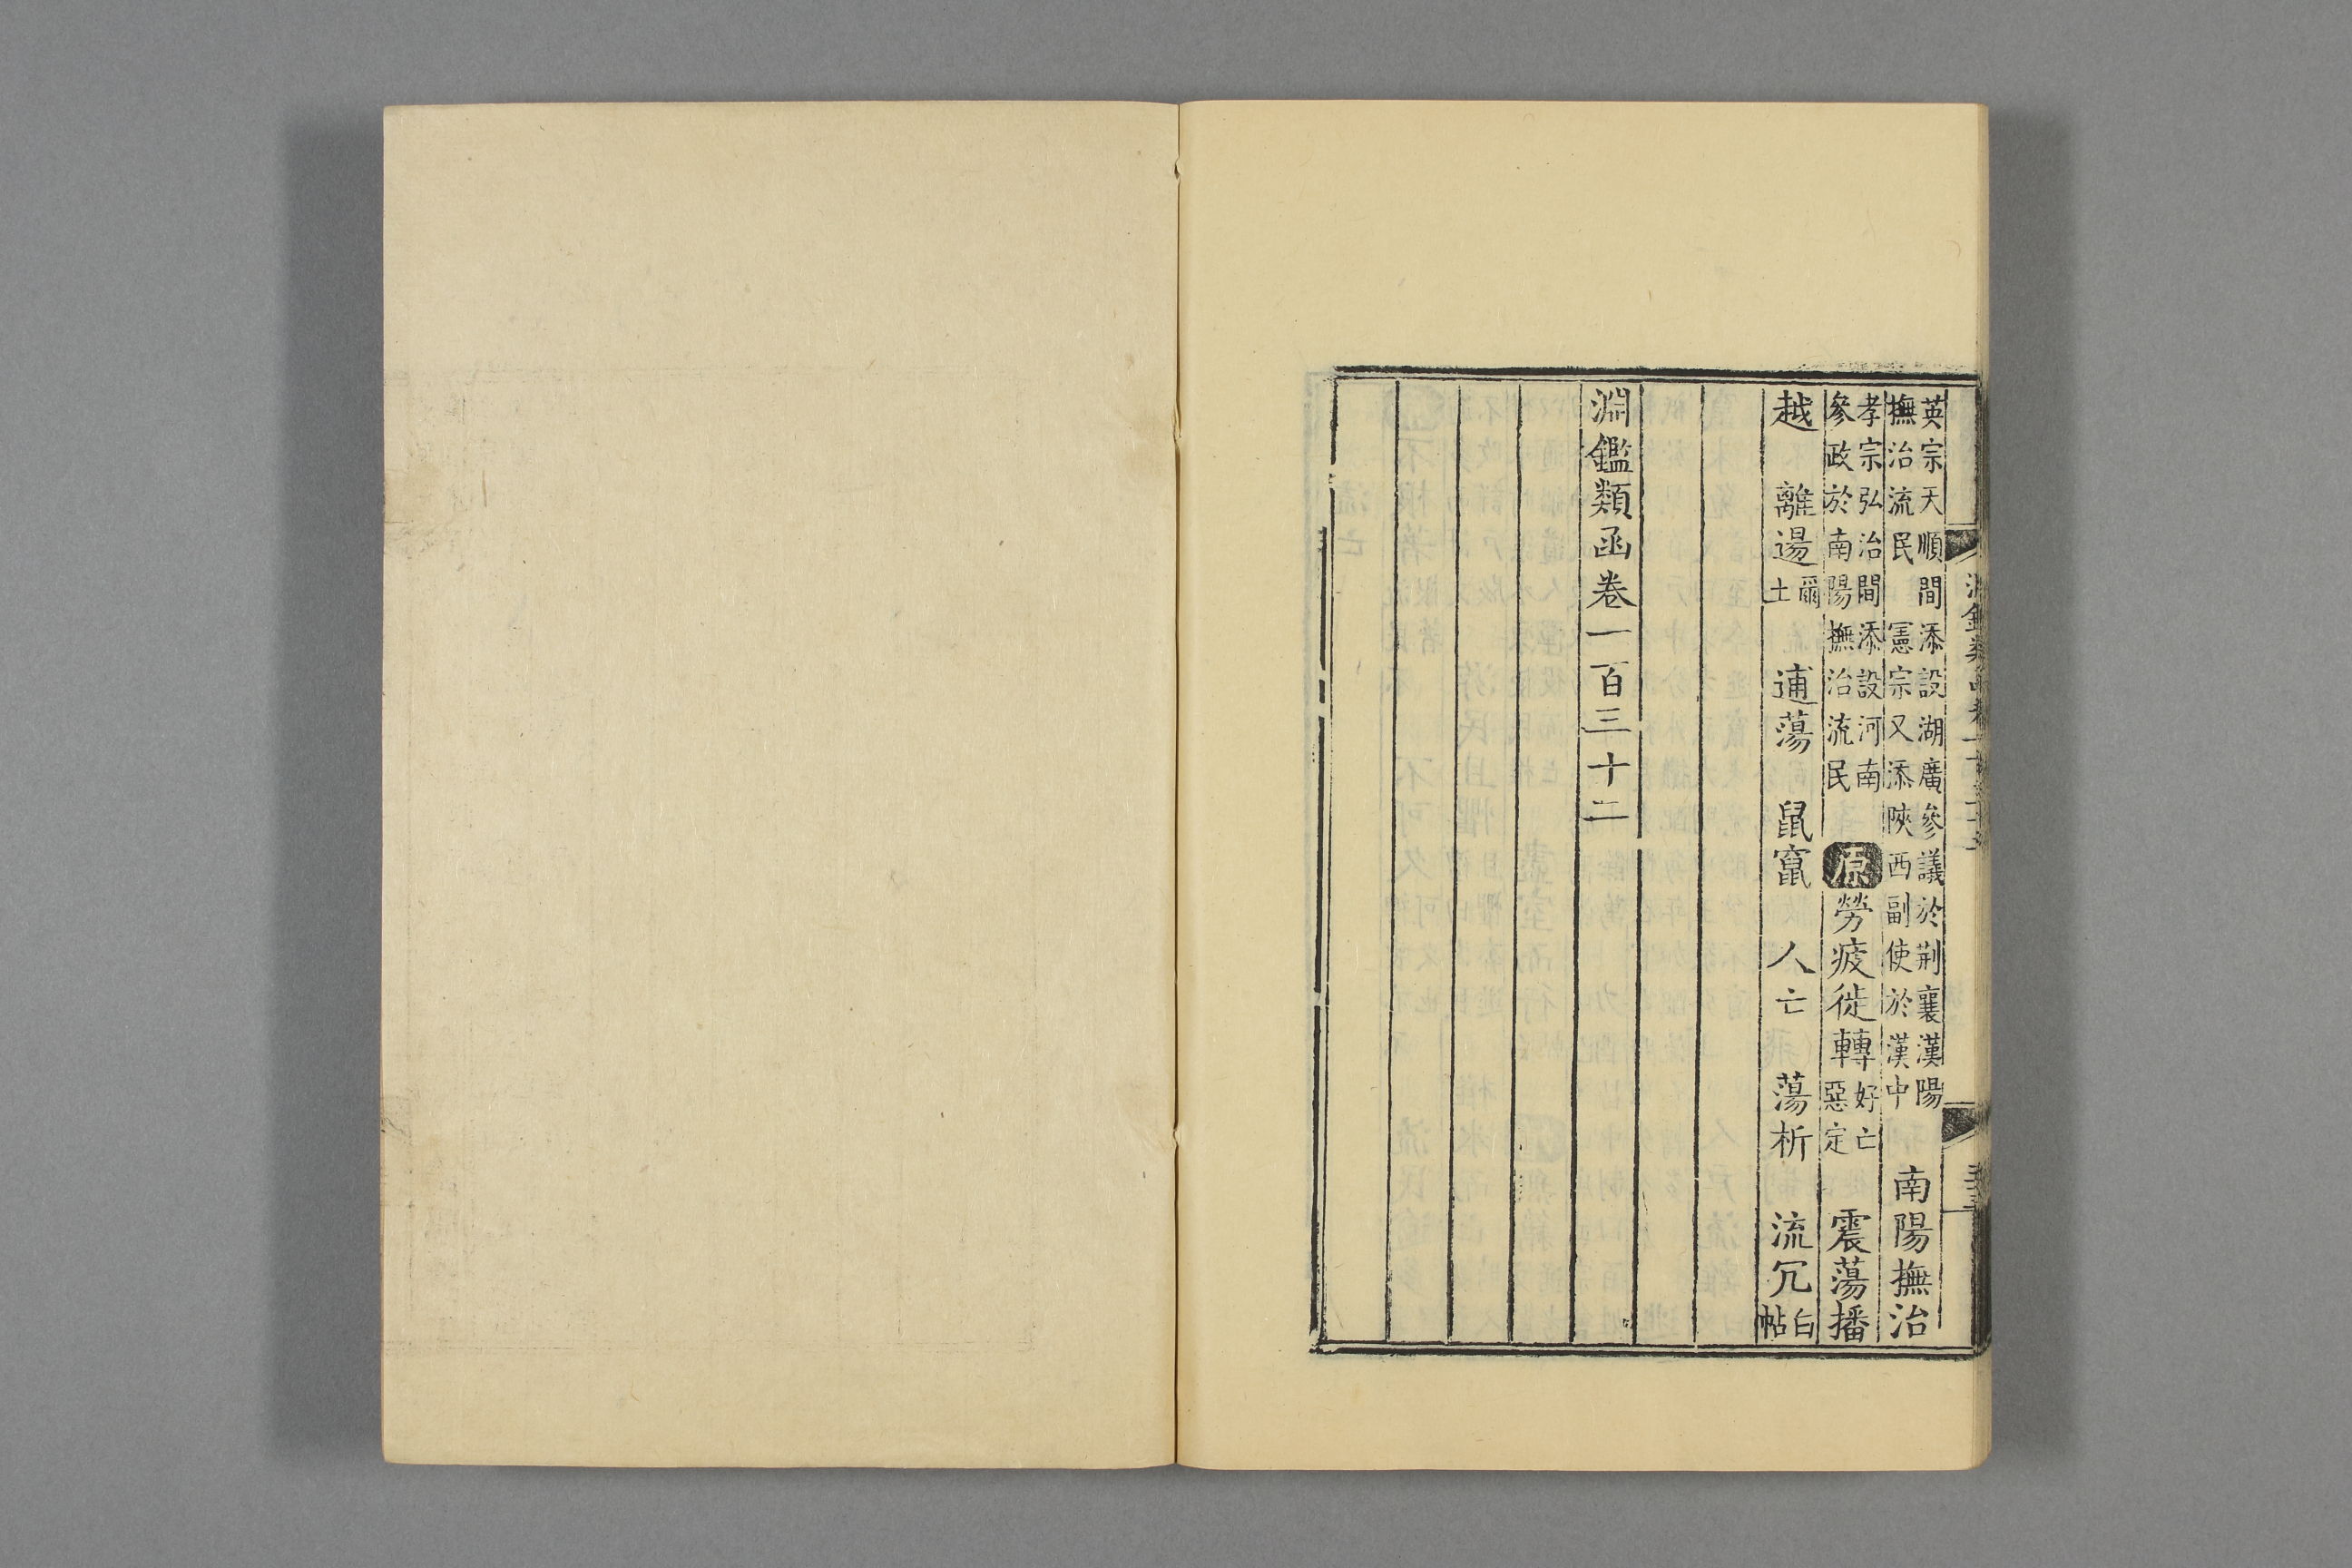 英宗天順間添設湖廣參議於荆襄漢陽
撫治流民 憲宗又添陝西副使於漢中
南陽撫治
孝宗弘治間添設河南
參政於南陽撫治流民
原 勞疲徙轉
好亡
惡定
震蕩播
越 離逷
爾
土
逋蕩 鼠竄 人亡 蕩析 流冗
白
帖
淵鑑類函卷一百三十二